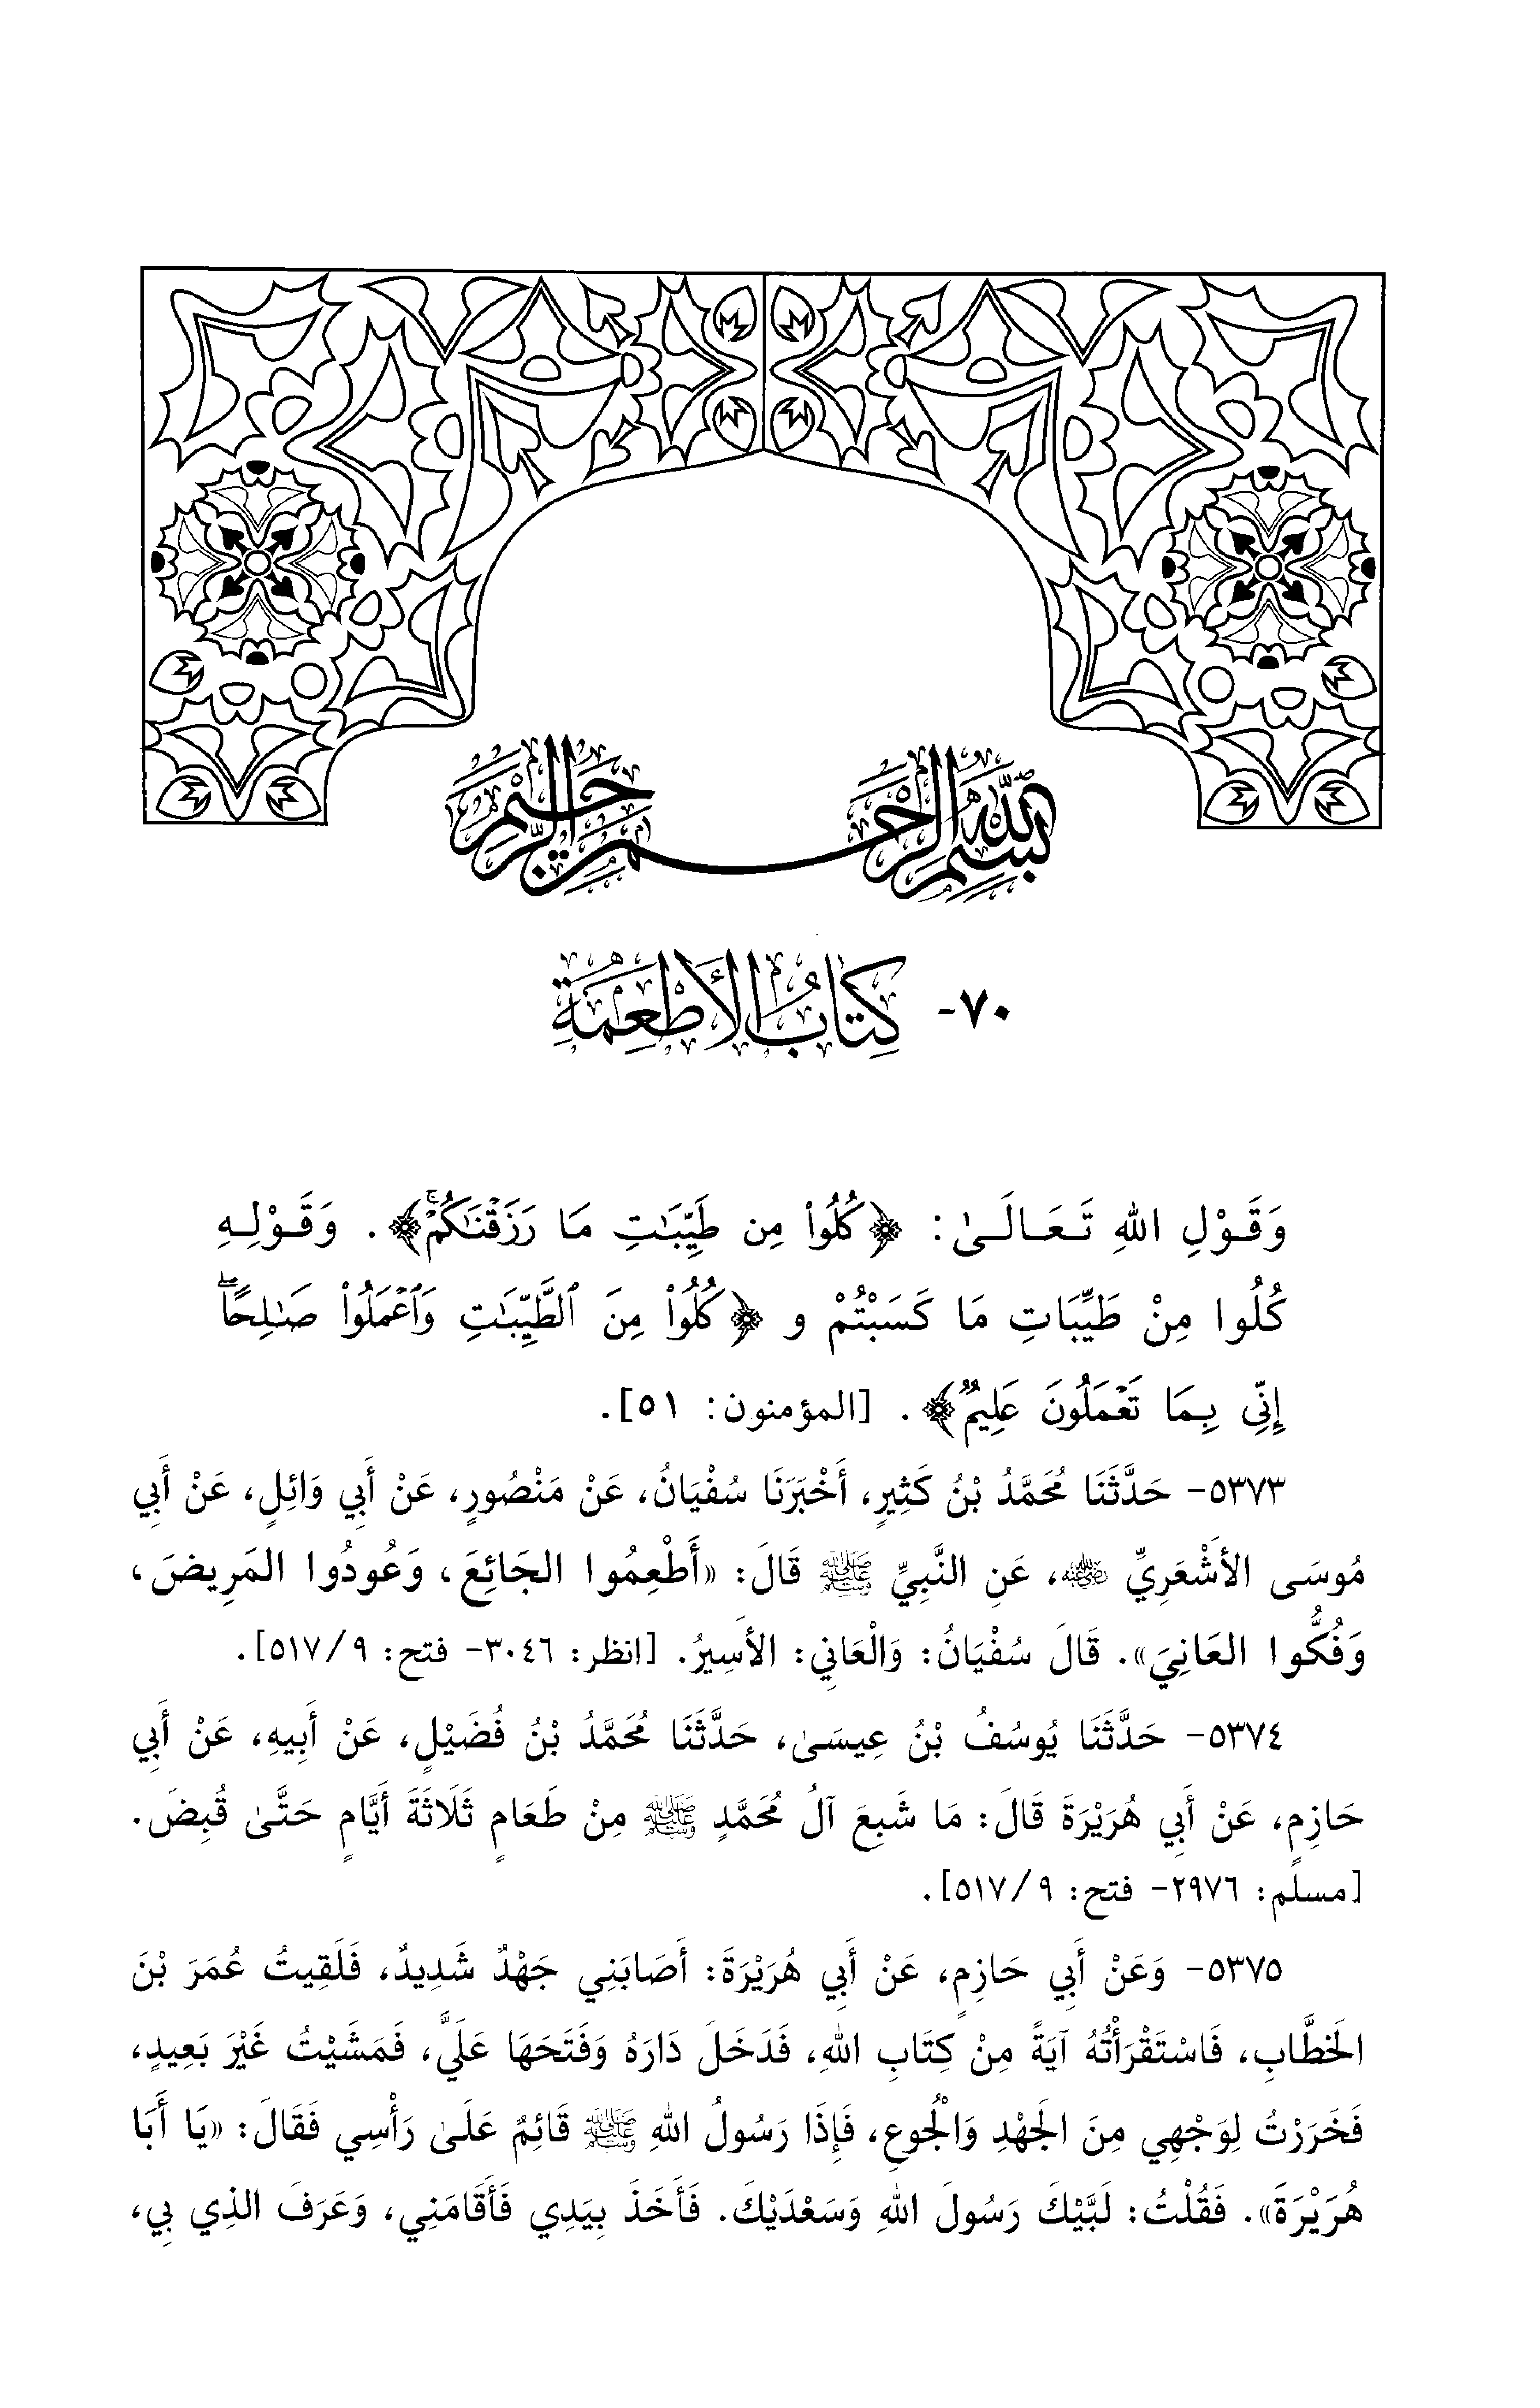 بِسْمِ اللهِ الرَّحْمَنِ الرَّحِيمِ
٧٠- كِتَابُ الأَطْعِمَةِ
وَقَوْلِ اللهِ تَعَالَىٰ: ﴿كُلُوا۟ مِن طَيِّبَـٰتِ مَا رَزَقْنَـٰكُمْ ۚ﴾. وَقَوْلِهِ
كُلُوا مِنْ طَيِّبَاتِ مَا كَسَبْتُمْ و ﴿كُلُوا۟ مِنَ ٱلطَّيِّبَـٰتِ وَٱعْمَلُوا۟ صَـٰلِحًا ۖ
إِنِّى بِمَا تَعْمَلُونَ عَلِيمٌ﴾. [المؤمنون: ٥١].
٥٣٧٣- حَدَّثَنَا مُحَمَّدُ بْنُ كَثِيرٍ، أَخْبَرَنَا سُفْيَانُ، عَنْ مَنْصُورٍ، عَنْ أَبِي وَائِلٍ، عَنْ أَبِي
مُوسَى الأَشْعَرِيِّ رضي الله عنه، عَنِ النَّبِيِّ ﷺ قَالَ: «أَطْعِمُوا الجَائِعَ، وَعُودُوا المَرِيضَ،
وَفُكُّوا العَانِيَ». قَالَ سُفْيَانُ: وَالْعَانِي: الأَسِيرُ. [انظر: ٣٠٤٦- فتح: ٩/ ٥١٧].
٥٣٧٤- حَدَّثَنَا يُوسُفُ بْنُ عِيسَىٰ، حَدَّثَنَا مُحَمَّدُ بْنُ فُضَيْلٍ، عَنْ أَبِيهِ، عَنْ أَبِي
حَازِمٍ، عَنْ أَبِي هُرَيْرَةَ قَالَ: مَا شَبِعَ آلُ مُحَمَّدٍ ﷺ مِنْ طَعَامٍ ثَلَاثَةَ أَيَّامٍ حَتَّىٰ قُبِضَ.
[مسلم: ٢٩٧٦- فتح: ٩/ ٥١٧].
٥٣٧٥- وَعَنْ أَبِي حَازِمٍ، عَنْ أَبِي هُرَيْرَةَ: أَصَابَنِي جَهْدٌ شَدِيدٌ، فَلَقِيتُ عُمَرَ بْنَ
الخَطَّابِ، فَاسْتَقْرَأْتُهُ آيَةً مِنْ كِتَابِ اللهِ، فَدَخَلَ دَارَهُ وَفَتَحَهَا عَلَيَّ، فَمَشَيْتُ غَيْرَ بَعِيدٍ،
فَخَرَرْتُ لِوَجْهِي مِنَ الجَهْدِ وَالْجُوعِ، فَإِذَا رَسُولُ اللهِ ﷺ قَائِمٌ عَلَىٰ رَأْسِي فَقَالَ: «يَا أَبَا
هُرَيْرَةَ». فَقُلْتُ: لَبَّيْكَ رَسُولَ اللهِ وَسَعْدَيْكَ. فَأَخَذَ بِيَدِي فَأَقَامَنِي، وَعَرَفَ الذِي بِي،